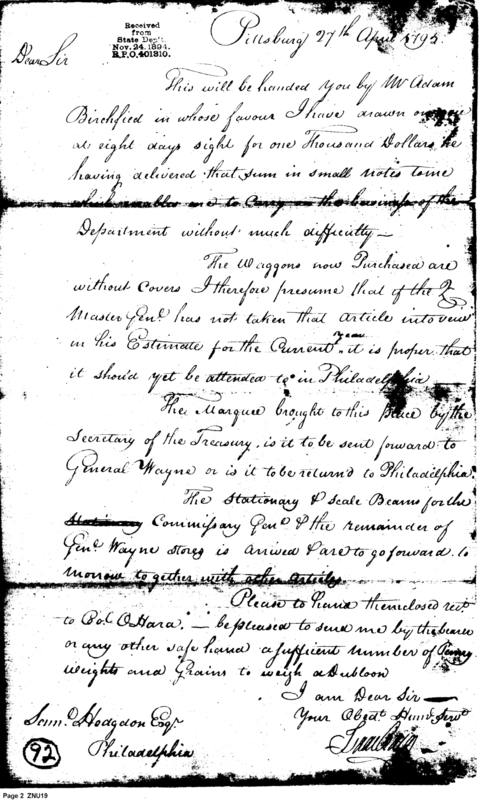 Received
from
State Dep't.
Nov. 24. 1894.
R.P.O. 401310.
Pittsburg 27th April 1795.
Dear Sir
This will be handed you by Mr Adam
Birchfied in whose favour I have drawn on you
at eight days sight for one Thousand Dollars, he
having delivered that sum in small notes to me
which enables me to carry on the business of the
Department without much difficulty —
The Waggons now Purchased are
without Covers I therefore presume that if the Q
Master Genl. has not taken that article into veiw
in his Estemate for the Current year it is proper that
it should yet be attended to in Philadelphia
The Marquee brought to this place by the
Secretary of the Treasury, is it to be sent forward to
General Wayne or is it to be return'd to Philadelphia.
The Stationary & Scale Beams for the
Stationary Commissary Genl & the remainder of
Genl. Wayne Stores is arrived & are to go forward to
morrow together with other articles.
Please to hand the enclosed rect.
to Col. O Hara. — be pleased to send me by the bearer
or any other safe hand a suffient number of Penny
weights and Grains to weigh a Dubloon
I am Dear Sir —
Your Obedt. Huml. Servt
Isaac Craig
Saml. Hodgdon Esqr.
Philadelphia
92
Page 2 ZNU19